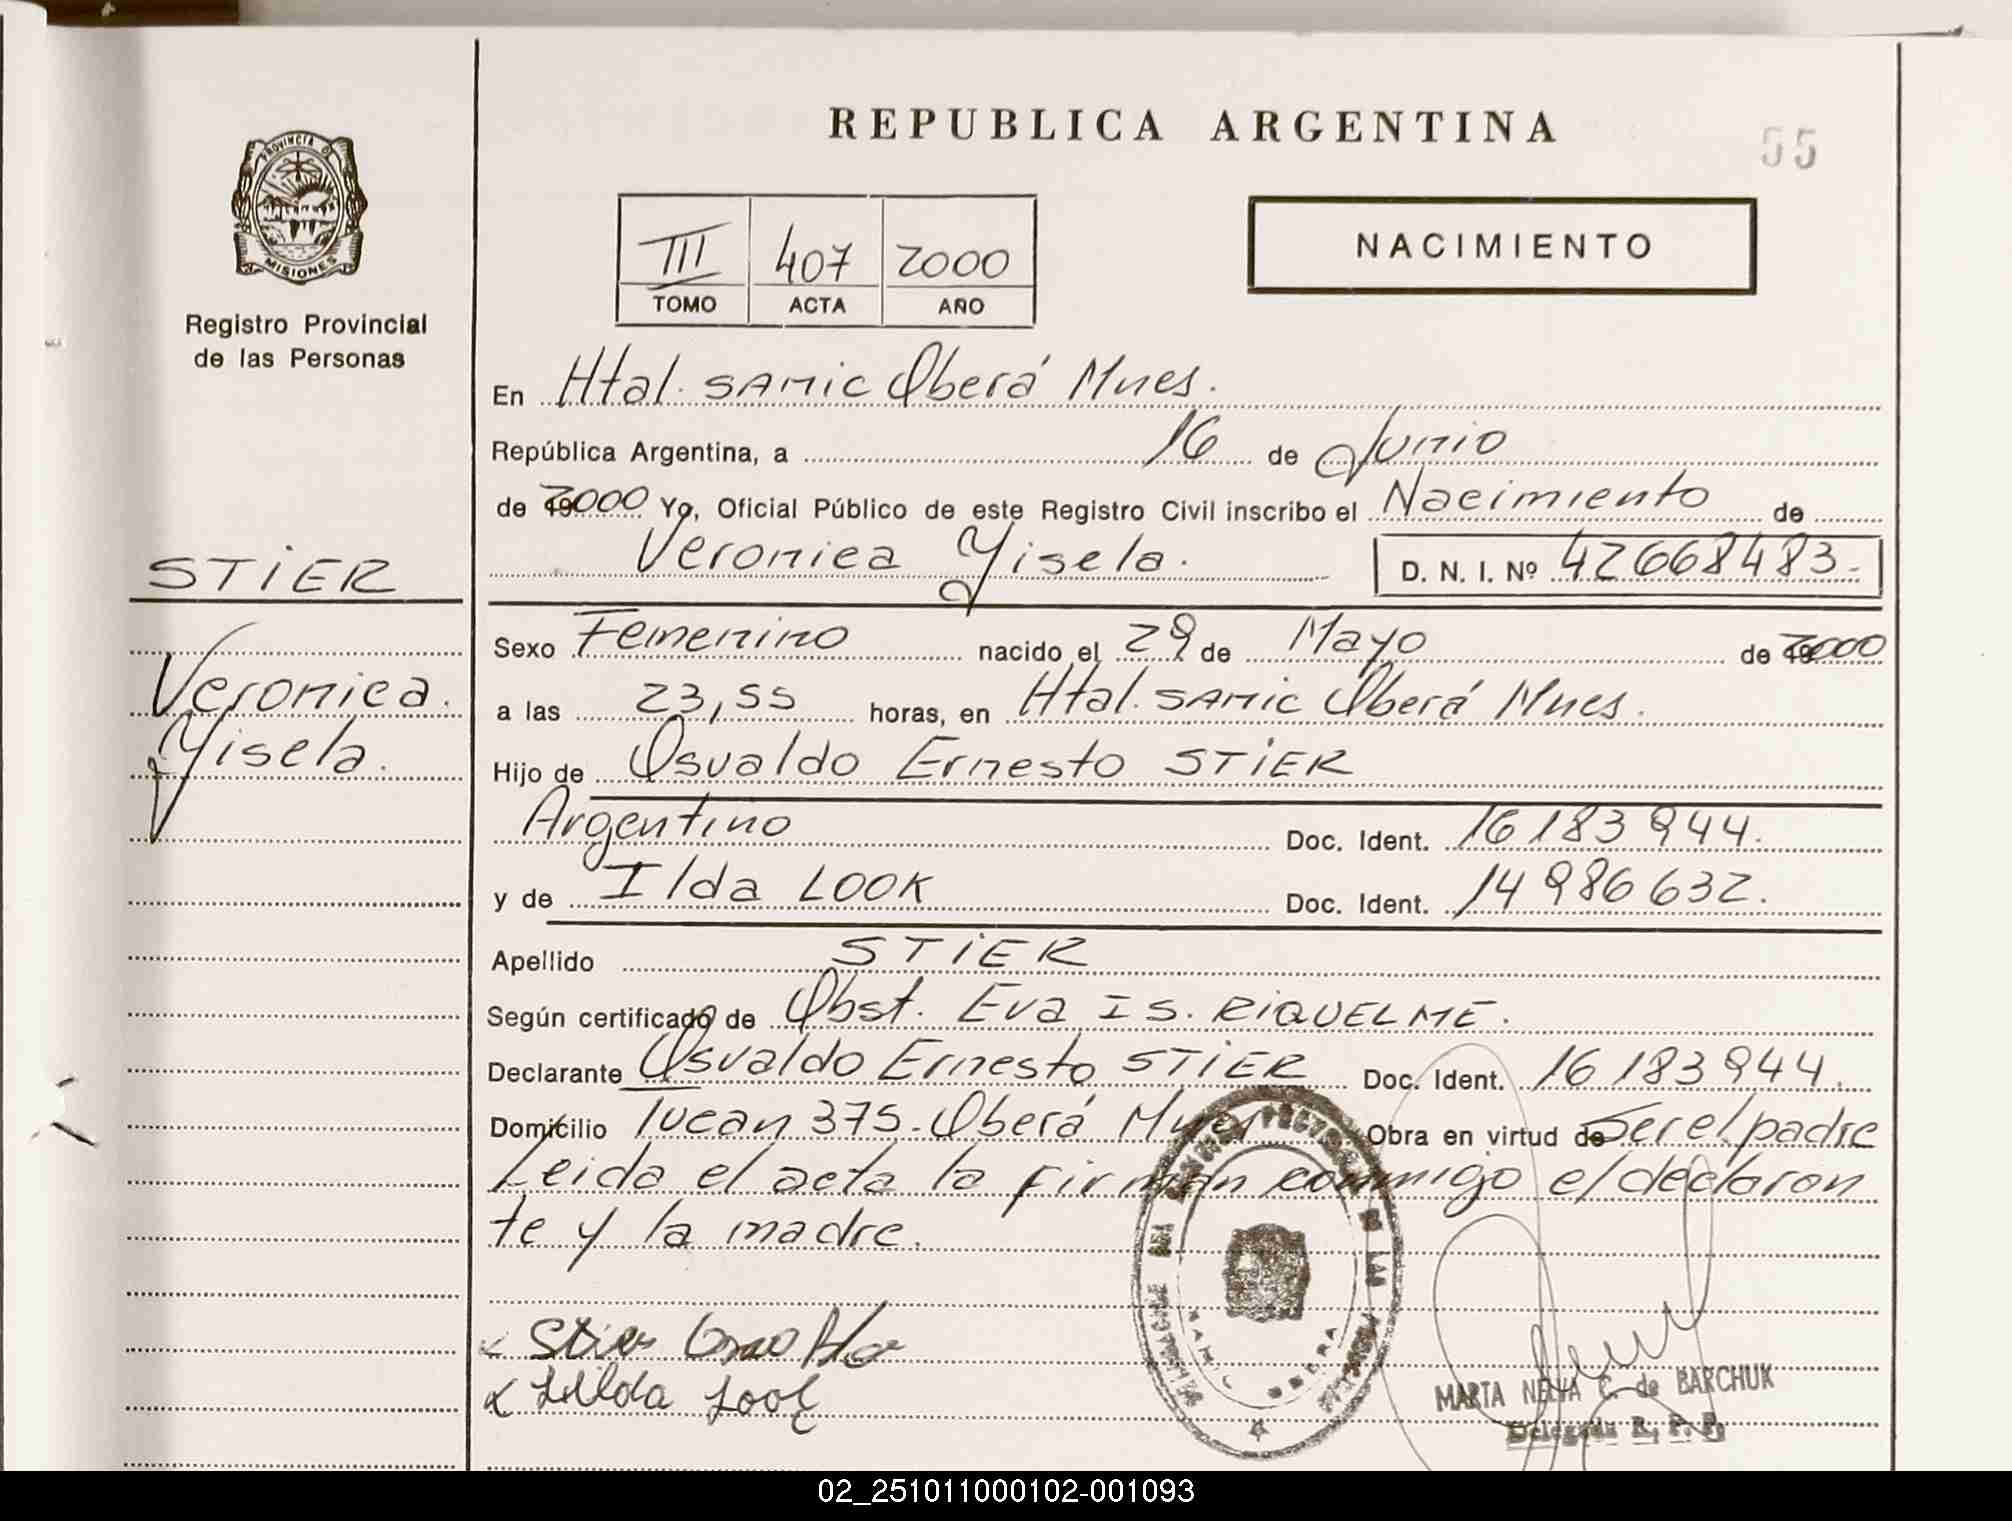 REPUBLICA ARGENTINA
55
PROVINCIA DE
MISIONES
Registro Provincial
de las Personas
III 407 2000
TOMO ACTA AÑO
NACIMIENTO
En Htal. SAMIC Oberá Mnes.
República Argentina, a 16 de Junio
de 2000 Yo, Oficial Público de este Registro Civil inscribo el Nacimiento de
Veronica Yisela. D. N. I. Nº 42668483.-
STIER
Veronica.
Yisela.
Sexo Femenino nacido el 29 de Mayo de 2000
a las 23,55 horas, en Htal. SAMIC Oberá Mnes.
Hijo de Osvaldo Ernesto STIER
Argentino Doc. Ident. 16183944.
y de Ilda LOOK Doc. Ident. 14986632.
Apellido STIER
Según certificado de Obst. Eva IS. RIQUELME.
Declarante Osvaldo Ernesto STIER Doc. Ident. 16183944.
Domicilio Tucan 375.-Oberá Mnes Obra en virtud de Ser el padre
Leida el acta la firman conmigo el declaran
te y la madre.
Stier
Ilda Look
OBERA
MARTA NELVA C. de BARCHUK
Delegada R. P. P.
02_251011000102-001093